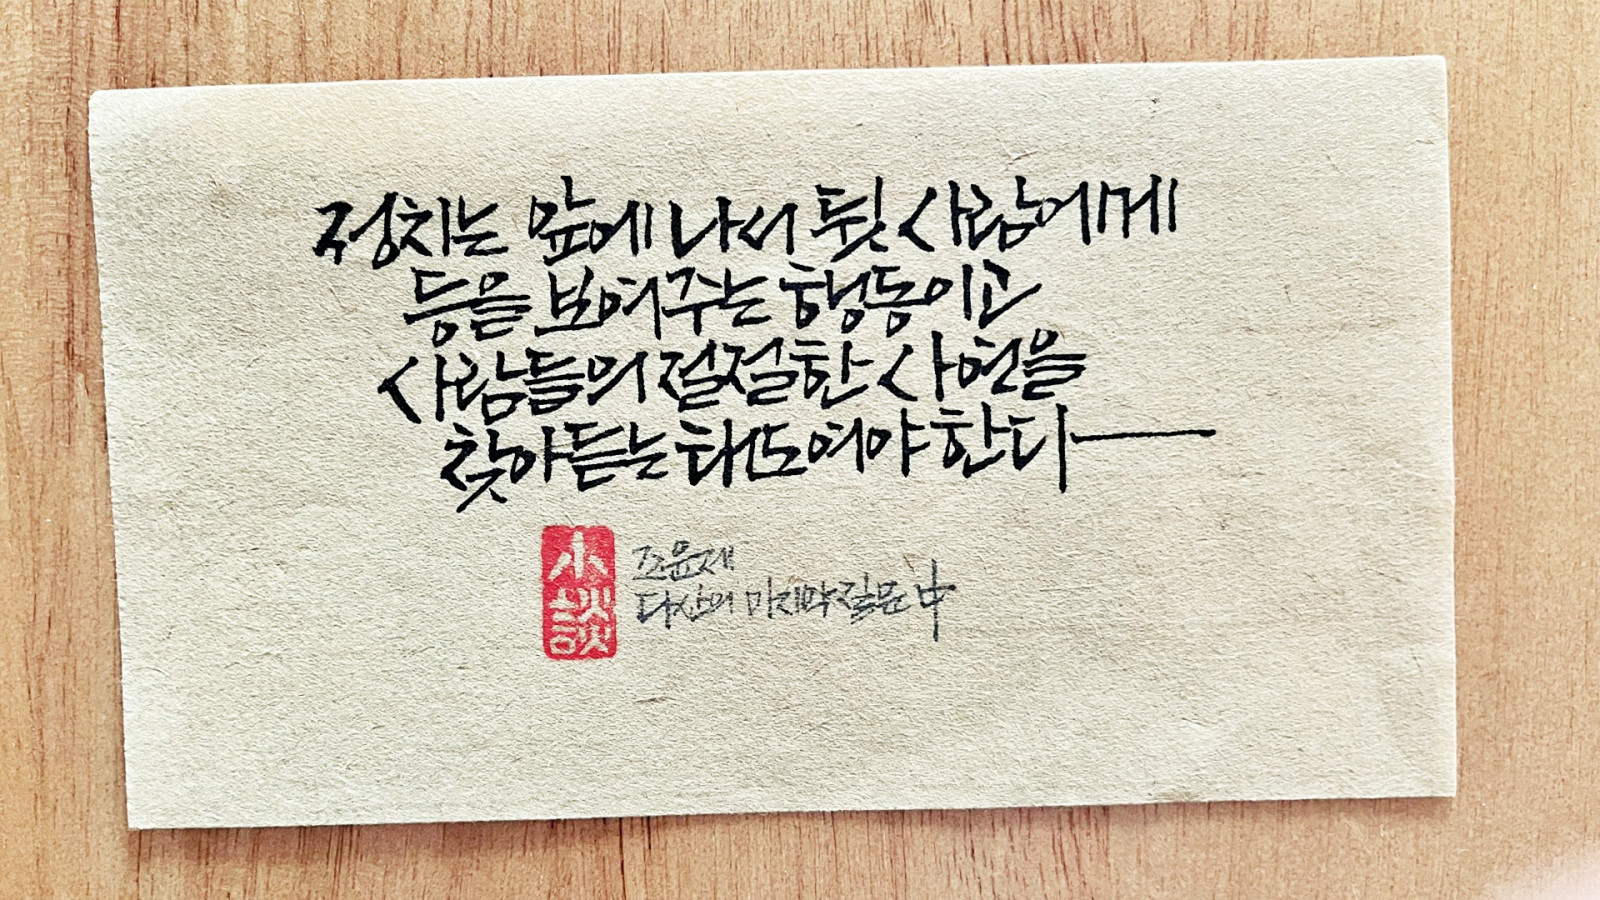 정치는 앞에 나서 뒷 사람에게
등을 보여주는 행동이고
사람들의 절절한 사연을
찾아 듣는 태도여야 한다
小談
조윤제
다산의 마지막 질문 中